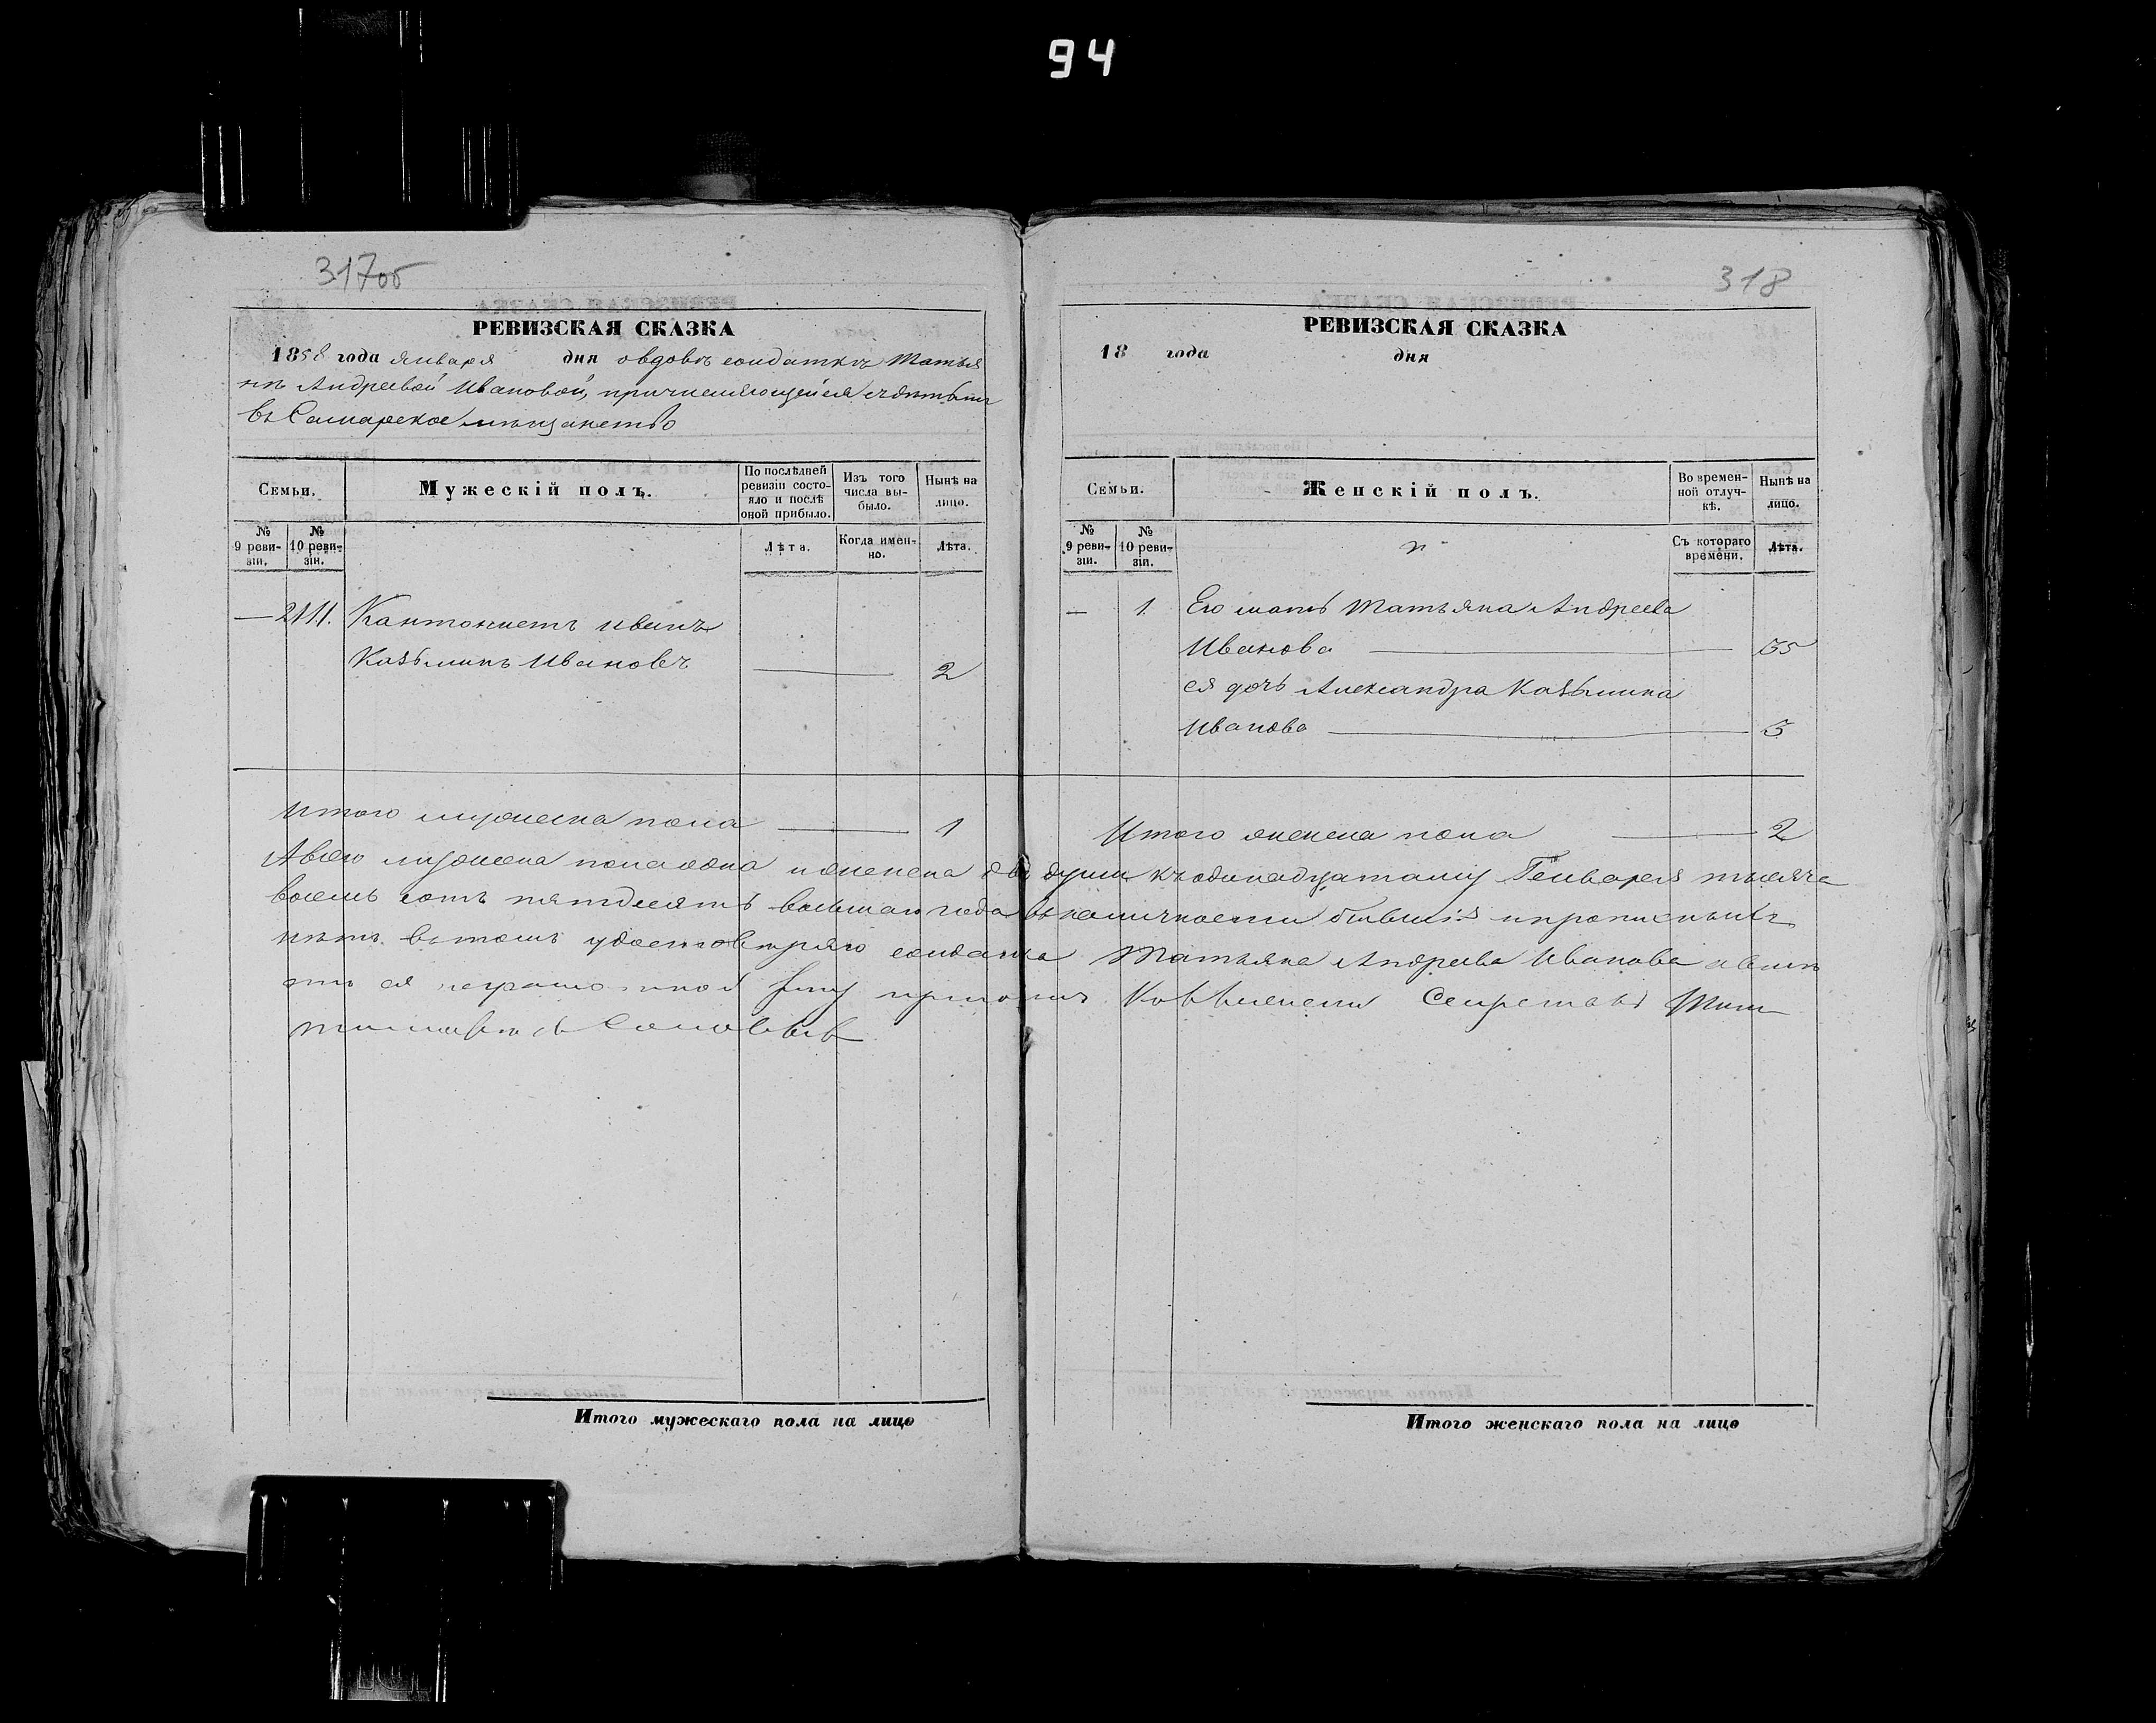 94
317об
РЕВИЗСКАЯ СКАЗКА
1858 года января дня о вдовѣ солдаткѣ Татья
нѣ Андреевой Ивановой, причисляющейся съ дѣтьми
въ Самарское мѣщанство
Семьи.
Мужескій полъ.
По послѣдней ревизіи состо-
яло и послѣ оной прибыло.
Изъ того числа вы-
было.
Нынѣ на лицо.
№ 9 реви-
зіи.
№ 10 реви-
зіи.
Лѣта.
Когда имен-
но.
Лѣта.
— 2111. Кантонистъ Иванъ
Казьминъ Ивановъ — 2
Итого мужеска пола — 1
318
РЕВИЗСКАЯ СКАЗКА
18 года дня
Семьи.
Женскій полъ.
Во времен-
ной отлуч-
кѣ.
Нынѣ на лицо.
№ 9 реви-
зіи.
№ 10 реви-
зіи.
Съ котораго времени.
Лѣта.
— 1. Его мать Татьяна Андреева
Иванова — 35
ея дочь Александра Казьмина
Иванова — 3
Итого женска пола — 2
А всего мужеска пола одна и женска двѣ души къ одинадцатому Генваря тысяча
восемь сотъ пятдесятъ восьмаго года въ наличности бывшія и прописныхъ
нѣтъ въ томъ удостовѣряю солдатка Татьяна Андреева Иванова а вмѣ
Итого мужескаго пола на лицо
Итого женскаго пола на лицо